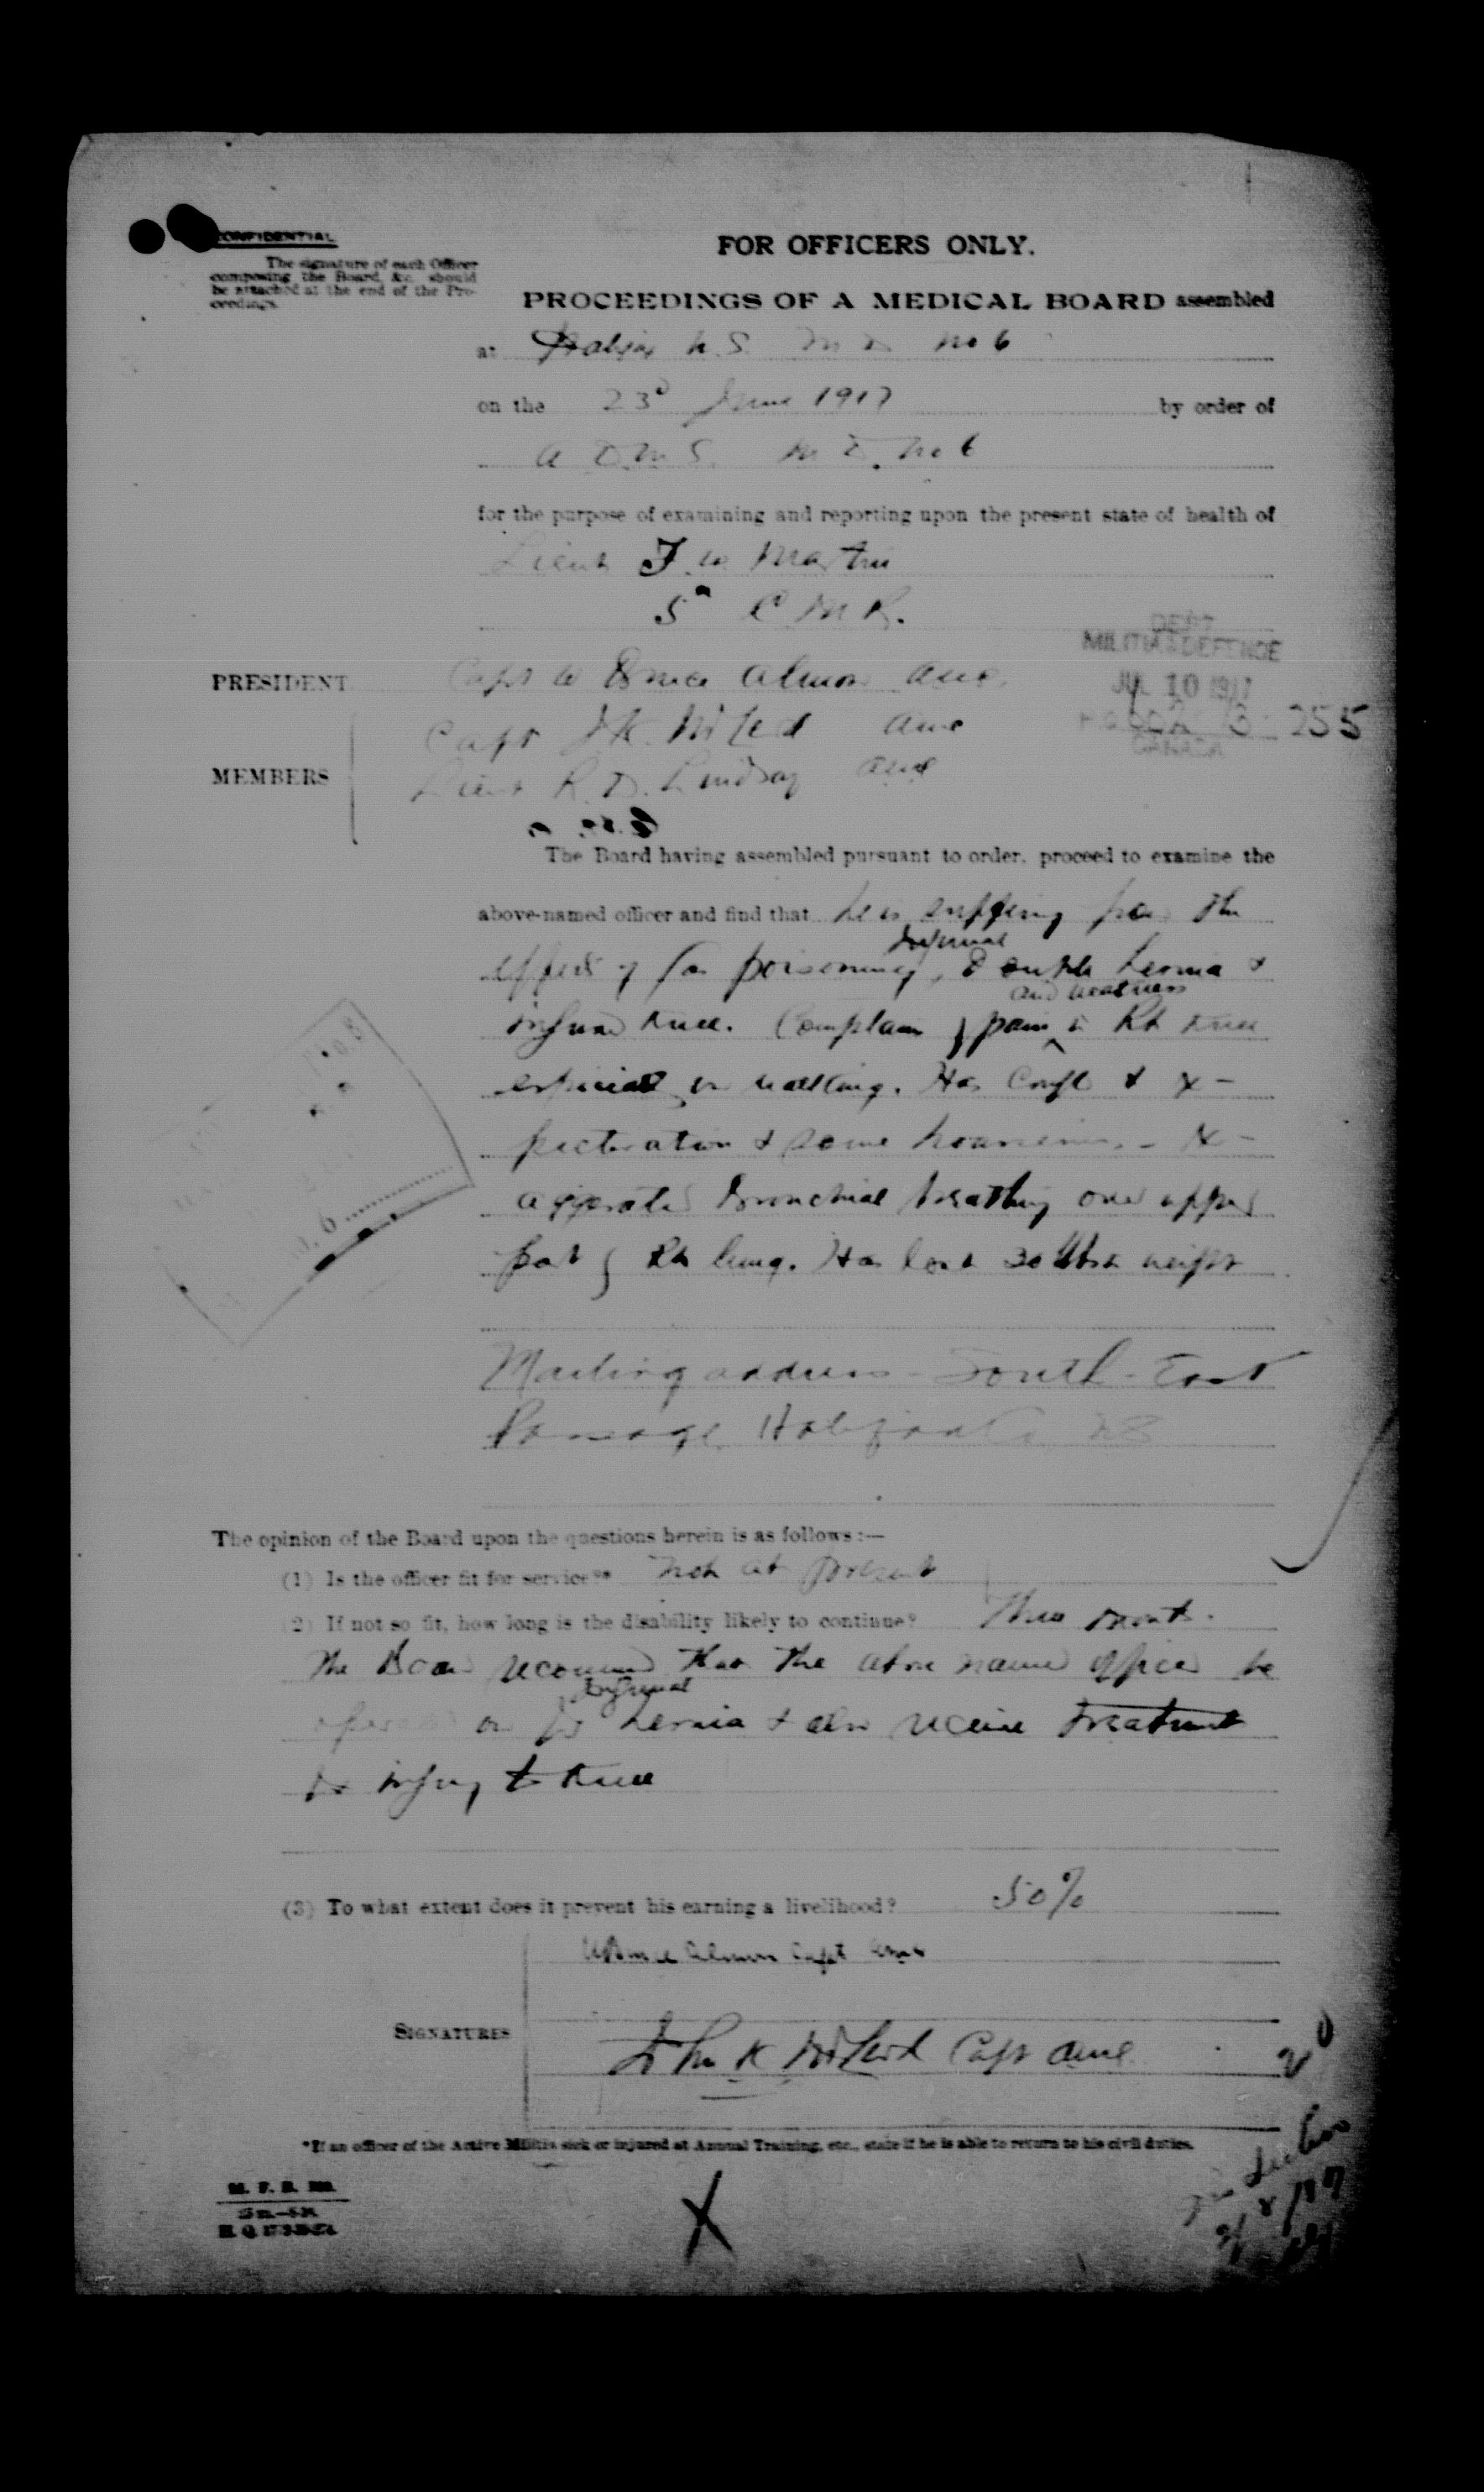 CONFIDENTIAL
The signature of each Officer
composing the Board, &c. should
be attached at the end of the Pro-
ceedings.
FOR OFFICERS ONLY.
PROCEEDINGS OF A MEDICAL BOARD assembled
at Halifax N.S. M D No 6
on the 23d June 1917 by order of
A D.M S. M D. No 6
for the purpose of examining and reporting upon the present state of health of
Lieut F. W Martin
5th C M R.
DEPT
MILITIA & DEFENCE
JUL 10 1917
255
CANADA
PRESIDENT Capt W Bruce Almon AMC
Capt J K. McLeod AMC
MEMBERS Lieut R. D. Lindsay AMC
The Board having assembled pursuant to order, proceed to examine the
above-named officer and find that he is suffering from the
Inguinal
effects of Gas poisoning, Double hernia &
and weakness
injured knee. Complains of pain in Rt knee
especially on walking. Has Cough & x-
pectoration & some hoarseness - x-
aggerated Bronchial breathing over upper
part of Rt lung. Has lost 30 lbs in weight
Mailing address - South-East
Passage, Halifax Co NS
The opinion of the Board upon the questions herein is as follows:—
(1) Is the officer fit for service?* Not at present
(2) If not so fit, how long is the disability likely to continue? Three months.
The Board recommend that the above named officer be
Inguinal
operated on for hernia & also receive treatment
for injury to knee
(3) To what extent does it prevent his earning a livelihood? 50%
W Bruce Almon Capt AMC
SIGNATURES
John K McLeod Capt AMC
*If an officer of the Active Militia sick or injured at Annual Training, etc., state if he is able to return to his civil duties.
M. F. B.
H. Q.
X